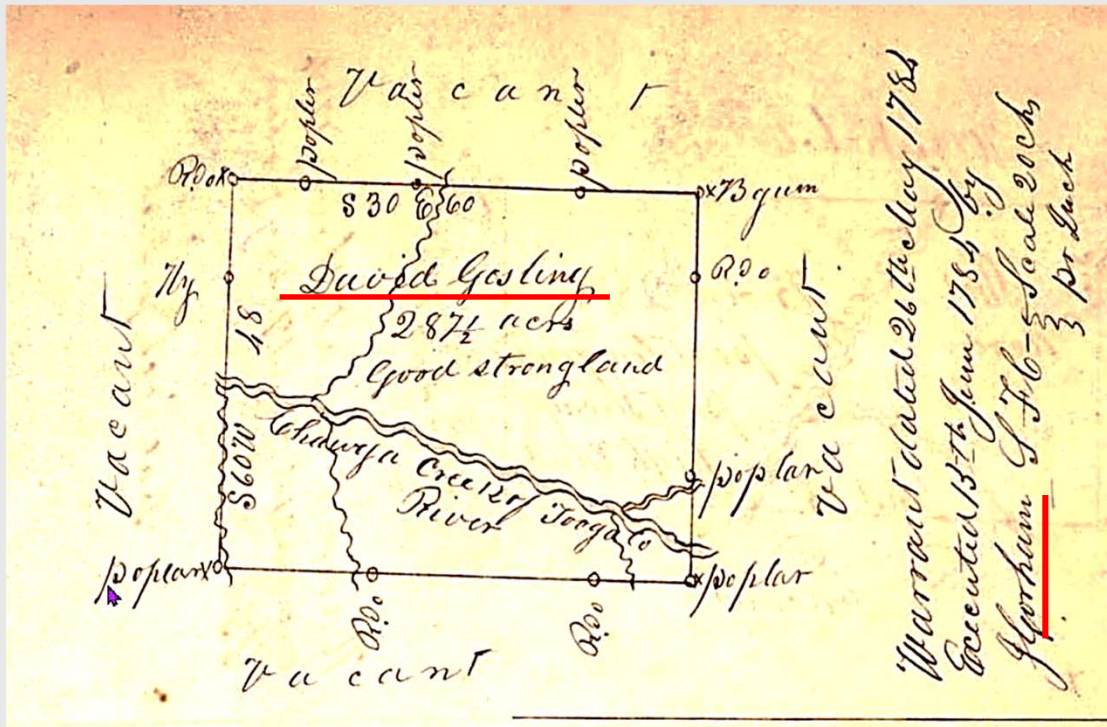 Vacant
popler
popler
popler
R.Oo
x B gum
S 30 E 60
Hy
R.Oo
David Gosling
287½ acrs
Good strongland
48
S 60 W
Vacant
Vacant
Chauga Creek of Toogalo
River
poplar
poplar
poplar
R.Oo
R.Oo
Vacant
Warrant dated 26th May 1784
Executed 13th Junn 1784 by
JGorham Scale 20 chs
pr Inch